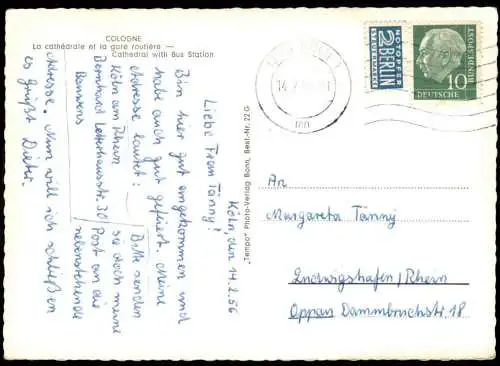 COLOGNE
La cathédrale et la gare routière —
Cathedral with Bus Station
Köln, den 14.2.56
Liebe Frau Tänny!
Bin hier gut angekommen und
habe auch gut gefeiert. Meine
Adresse lautet:
Köln am Rhein
Bernhard Letterhausstr. 30
Bitte senden
sie doch meine
Post an die
nebenstehende
Adresse. Nun will ich schließen
es grüßt Dieter.
"Tempo" Photo-Verlag Bonn, Best.-Nr. 22 G
NOTOPFER
2 BERLIN
STEUERMARKE
DEUTSCHE
BUNDESPOST
10
An
Margareta Tänny
Ludwigshafen/Rhein
Oppau Dammbruchstr. 18